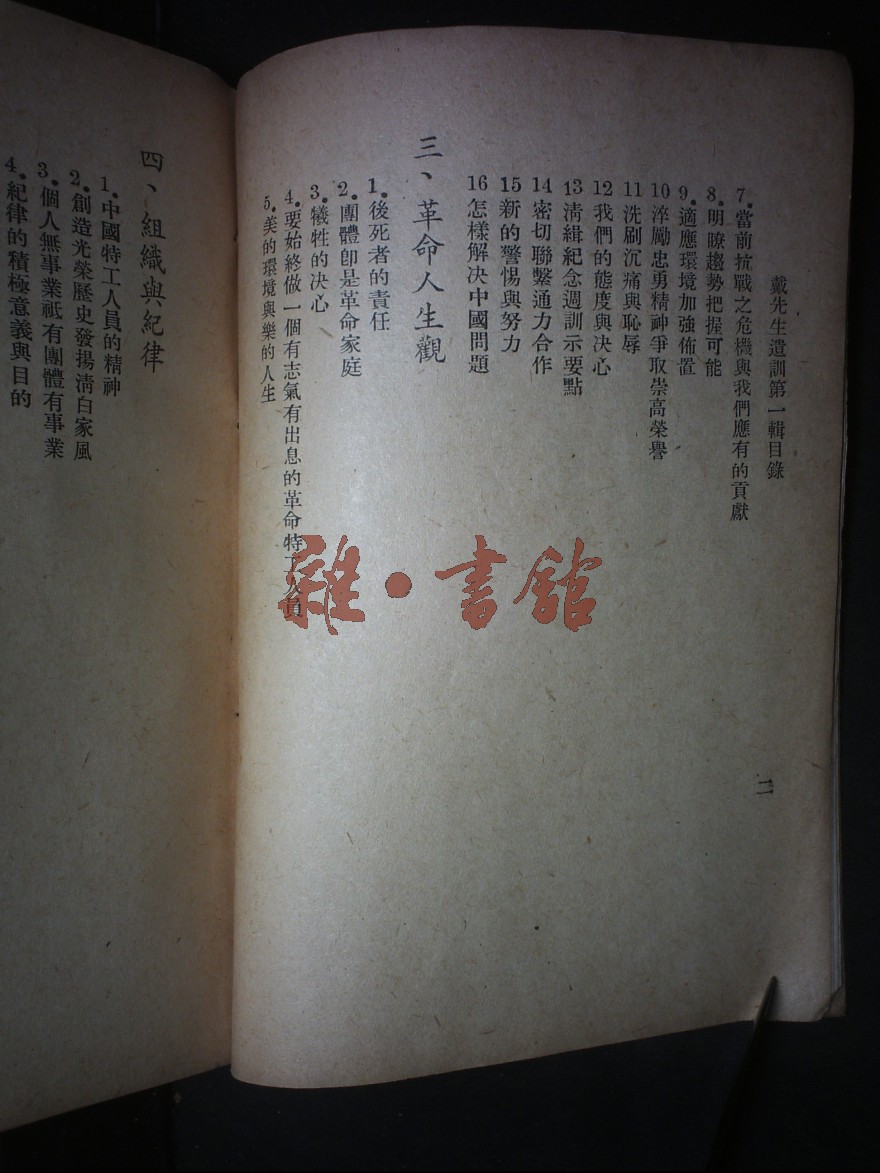 戴先生遺訓第一輯目錄
7.當前抗戰之危機與我們應有的貢獻
8.明瞭趨勢把握可能
9.適應環境加強佈置
10淬勵忠勇精神爭取崇高榮譽
11洗刷沉痛與恥辱
12我們的態度與決心
13清緝紀念週訓示要點
14密切聯繫通力合作
15新的警惕與努力
16怎樣解決中國問題
三、革命人生觀
1.後死者的責任
2.團體即是革命家庭
3.犧牲的決心
4.要始終做一個有志氣有出息的革命特工人員
5.美的環境與樂的人生
二
四、組織與紀律
1.中國特工人員的精神
2.創造光榮歷史發揚清白家風
3.個人無事業祗有團體有事業
4.紀律的積極意義與目的
雜·書館